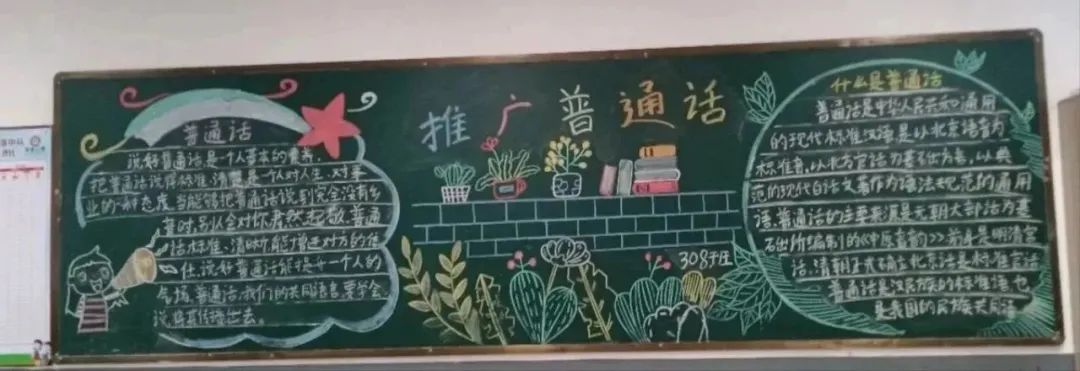 普通话
说好普通话是一个人基本的素养,
把普通话说得标准、清楚是一个对人生、对事
业的一种态度,当能够把普通话说到完全没有乡
音时,别人会对你肃然起敬,普通
话标准、清晰才能增进对方的信
任,说好普通话能提升一个人的
气场,普通话,我们的共同语言,要学会
说,将其传播出去。
推广普通话
308于庄
什么是普通话
普通话是中华人民共和通用
的现代标准汉语,是以北京语音为
标准音,以北方官话为基础方言,以典
范的现代白话文著作为语法规范的通用
语,普通话的主要来源是元朝大都话为基
石出所编制的《中原音韵》前身是明清官
话,清朝正式确立北京话是标准官话
普通话是汉民族的标准语也
是我国的民族共同语